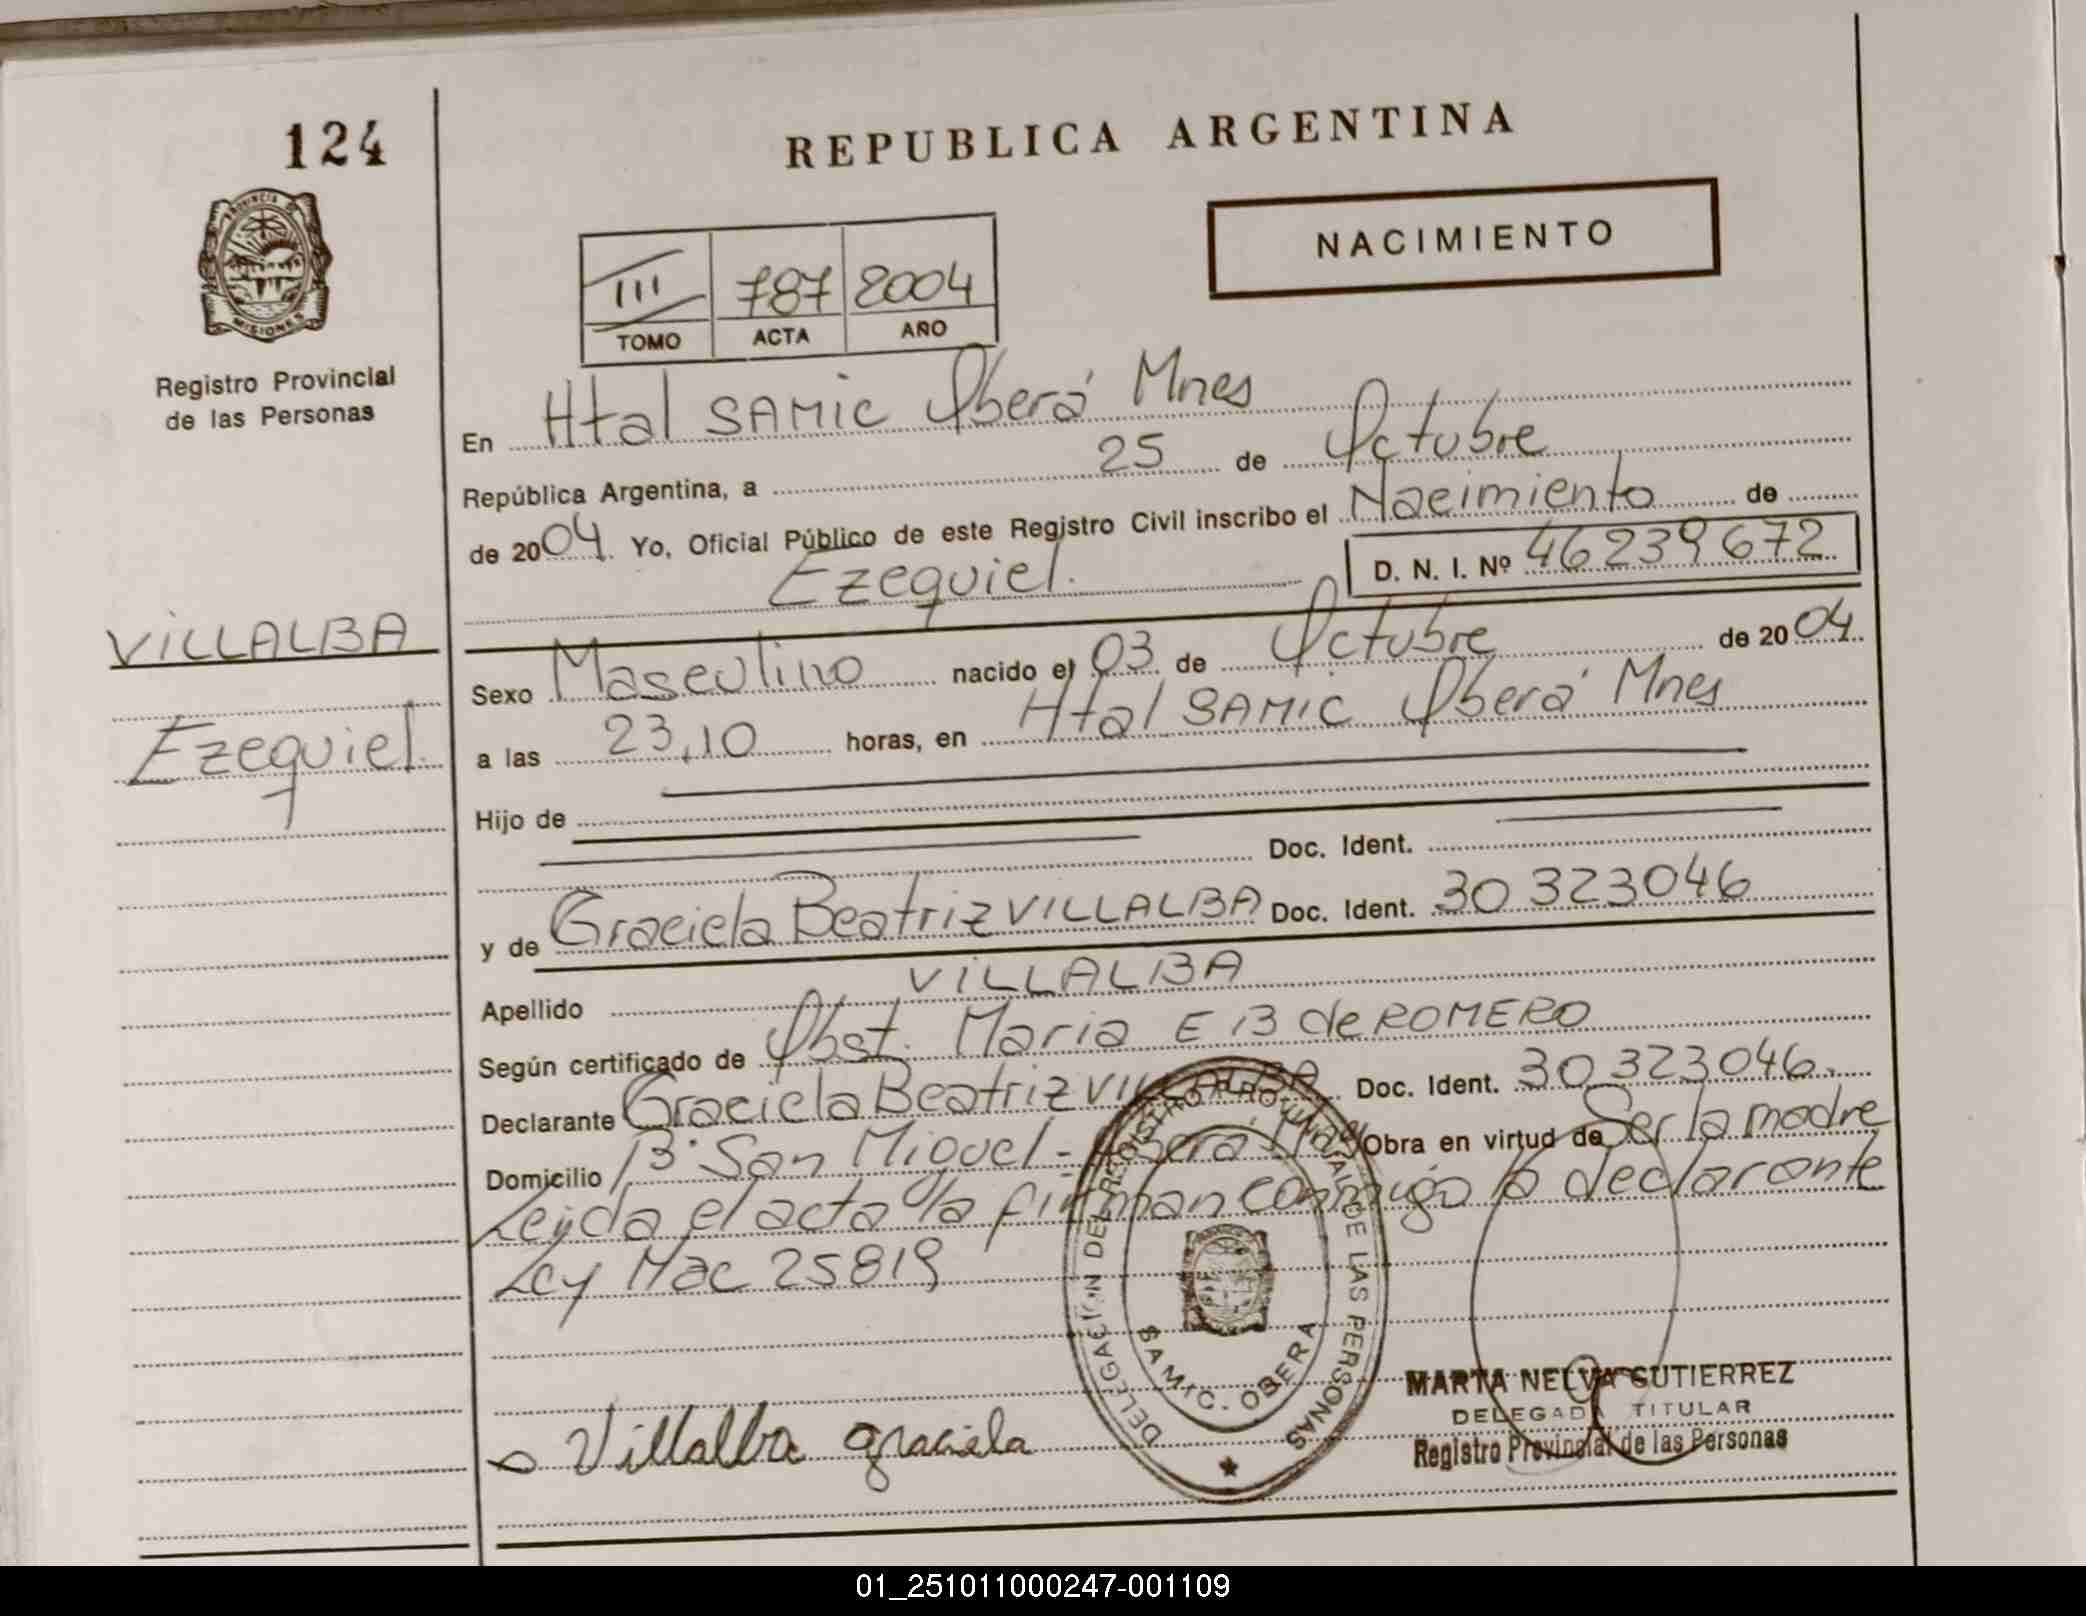 124
REPUBLICA ARGENTINA
PROVINCIA DE
MISIONES
Registro Provincial
de las Personas
NACIMIENTO
III 787 2004
TOMO ACTA AÑO
En Htal SAMIC Oberá Mnes
República Argentina, a 25 de Octubre
de 2004. Yo, Oficial Público de este Registro Civil inscribo el Nacimiento de
Ezequiel. D. N. I. Nº 46239672
VILLALBA
Ezequiel.
Sexo Masculino nacido el 03 de Octubre de 2004
a las 23,10 horas, en Htal SAMIC Oberá Mnes
Hijo de
Doc. Ident.
y de Graciela Beatriz VILLALBA Doc. Ident. 30323046
Apellido VILLALBA
Según certificado de Obst. Maria E B de ROMERO
Declarante Graciela Beatriz VILLALBA Doc. Ident. 30323046.
Domicilio Bº San Miguel - Oberá Mnes Obra en virtud de Ser la madre
Leida el acta la firman conmigo la declarante
Ley Nac 25819
DELEGACION DEL REGISTRO PROVINCIAL DE LAS PERSONAS
SAMIC. OBERA
Villalba graciela
MARTA NELVA GUTIERREZ
DELEGADA TITULAR
Registro Provincial de las Personas
01_251011000247-001109